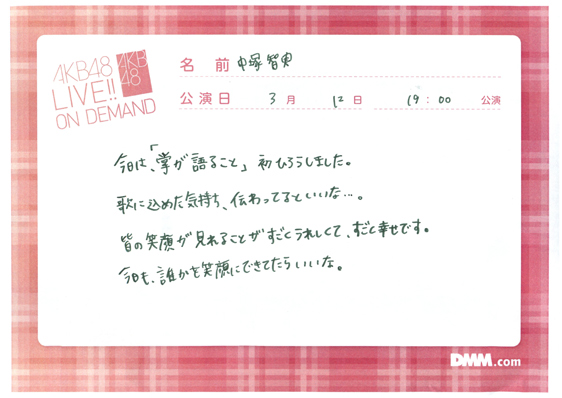 AKB48
LIVE!!
ON DEMAND
AKB
48
名前 中塚智実
公演日 3月 12日 19:00 公演
今日は、「掌が語ること」初ひろうしました。
歌に込めた気持ち、伝わってるといいな…。
皆の笑顔が見れることがすごくうれしくて、すごく幸せです。
今日も、誰かを笑顔にできてたらいいな。
DMM.com